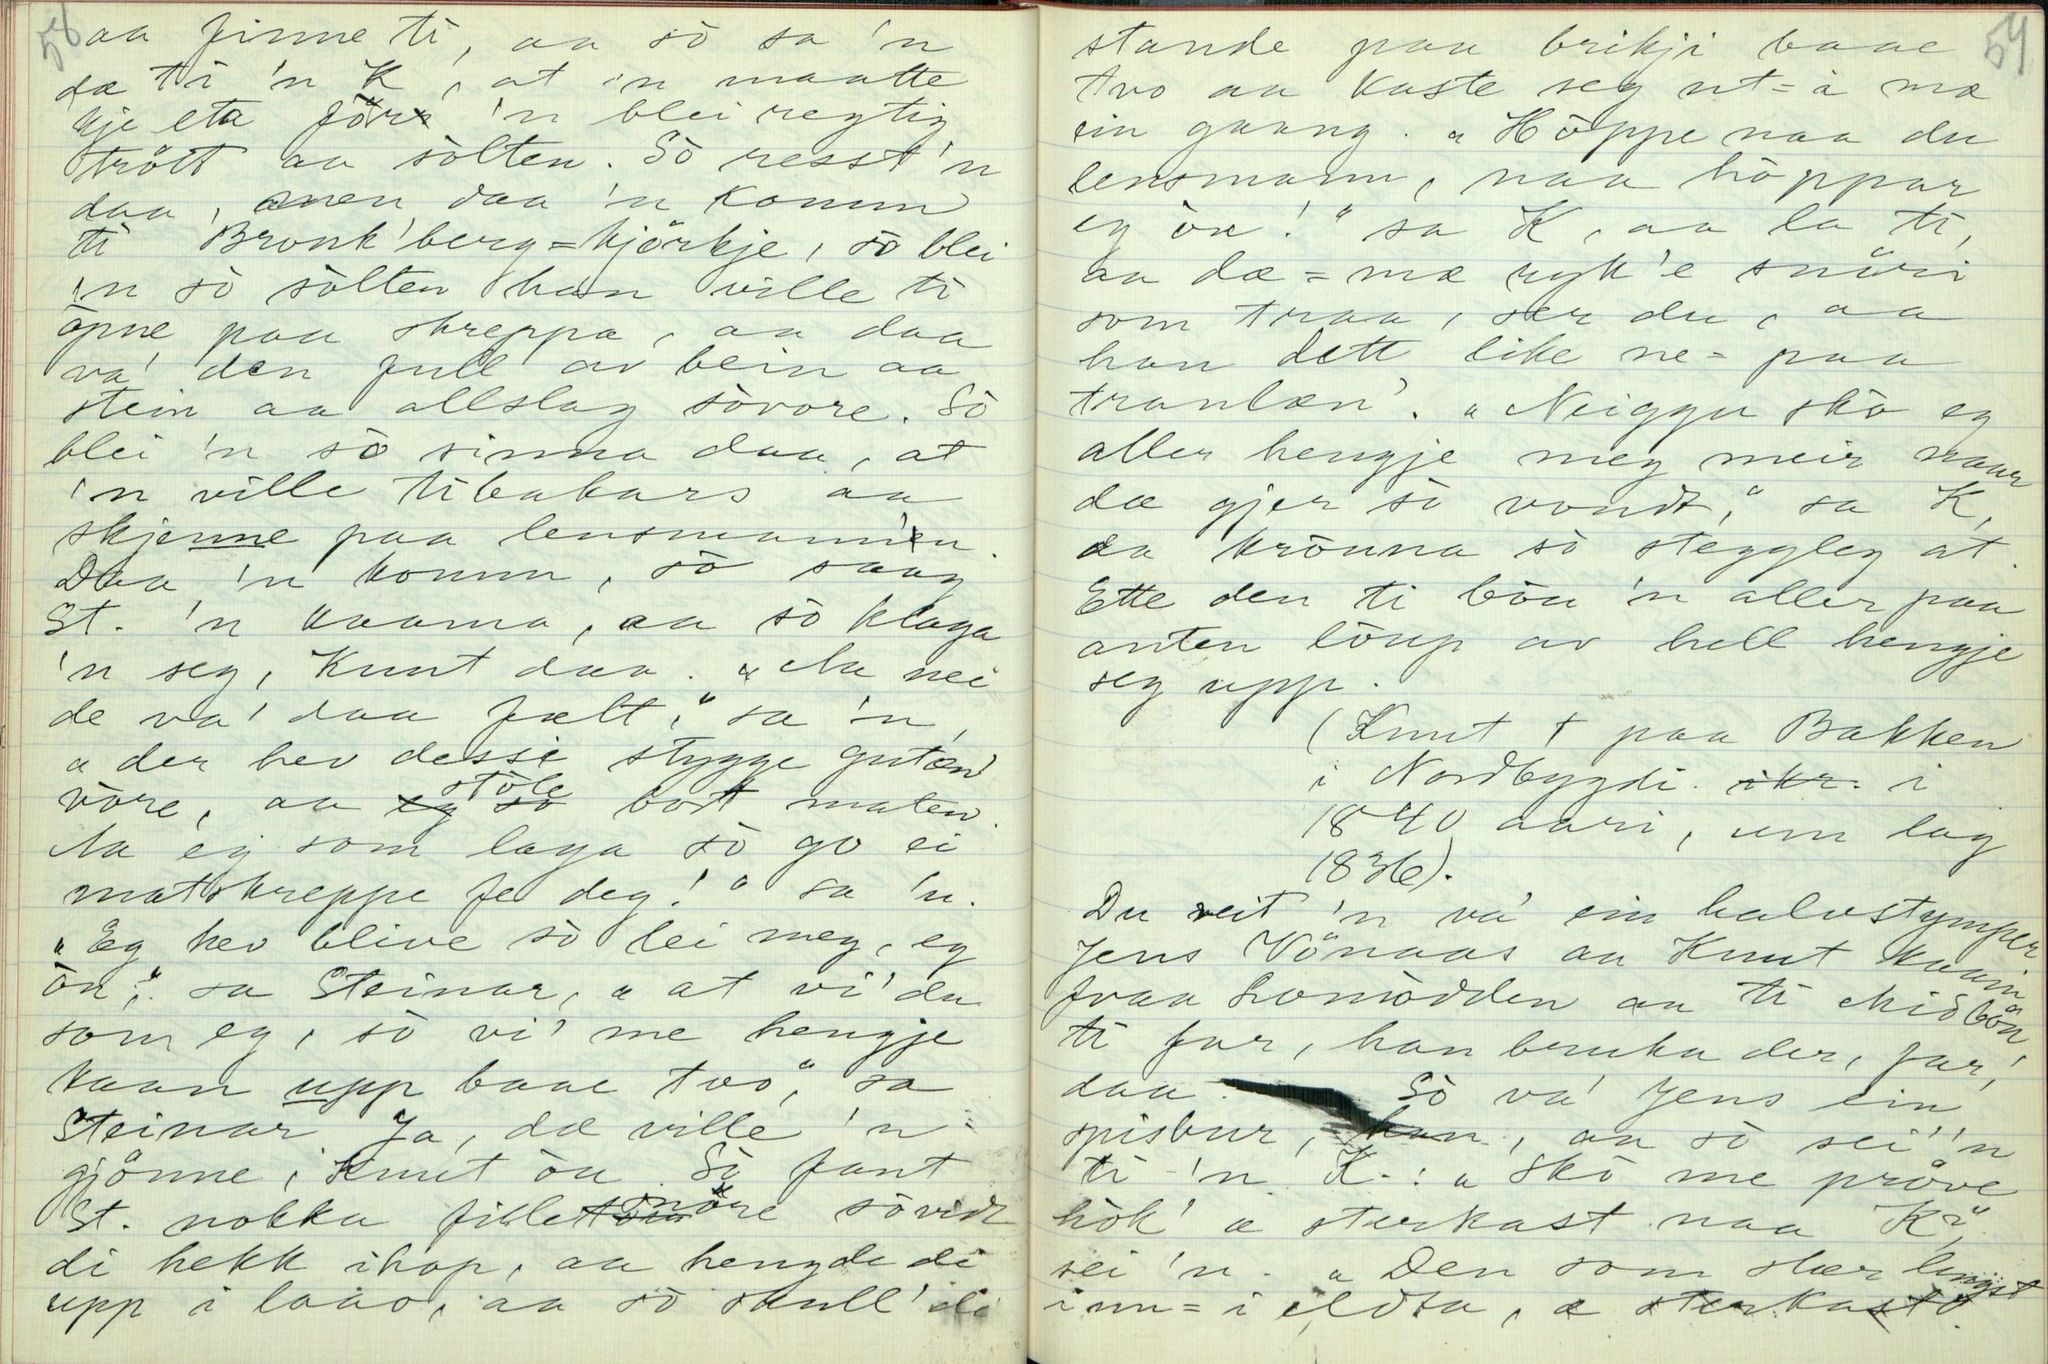 58
aa finne ti, aa sò sa 'n
dæ ti 'n K, at 'n maatte
kje eta förr 'n blei regtig
trött aa sòlten. Sò resst 'n
daa, men daa 'n komm
ti Bronk'berg=kjörkje, sò blei
'n sò sòlten han ville ti
òpne paa skreppa, aa daa
va' den full av bein aa
stein aa allslag sòvore. Sò
blei 'n sò sinna daa, at
'n ville tibakars aa
skjenne paa lensmann'en.
Daa 'n komm, sò saag
St. 'n kaama, aa sò klaga
'n seg, Knut daa. „Aa nei
de va' daa fælt," sa 'n,
„der hev desse stygge gutan
vòre, aa stòle bort maten.
Aa eg som laga sò go ei
matskreppe fe deg!" sa 'n.
„Eg hev blive sò lei meg, eg
òu," sa Steinar, „at vi' du
som eg, sò vi' me hengje
kaan upp baae two," sa
Steinar. Ja, dæ ville 'n
gjönne, Knut òu. Sò fant
St. nokka fillesnöre sòvidt
di hekk ihop, aa hengde di
upp i laao, aa sò skull' di
54
stande paa brikji baae
tvo aa kaste seg ut=i mæ
ein gaang. „Höppe naa du
lensmann, naa höppar
eg òu!" sa K, aa la ti,
aa dæ=mæ ryk 'e snöri
som traa, ser du, aa
han dett like ne= paa
tranlæn'. „Neiggu skò eg
aller hengje meg meir naar
dæ gjer sò vondt," sa K,
da kròuna sò steggleg at.
Ette den ti bòu 'n aller paa
anten löup av hell hengje
seg upp.
(Knut † paa Bakken
i Nordbygdi i
1840 aari, um lag
1836).
Du veit 'n va' ein halvstymper
Jens Vönaas aa Knut kaam
fraa aa ti Midbön
ti far, han bruka der, far,
daa. Sò va' Jens ein
spisbur, aa sò sei' 'n
ti 'n K.: „Skò me pröve
hòk' æ sterkast naa K?",
sei 'n. „Den som slær lengst
inn=i æ sterkast.